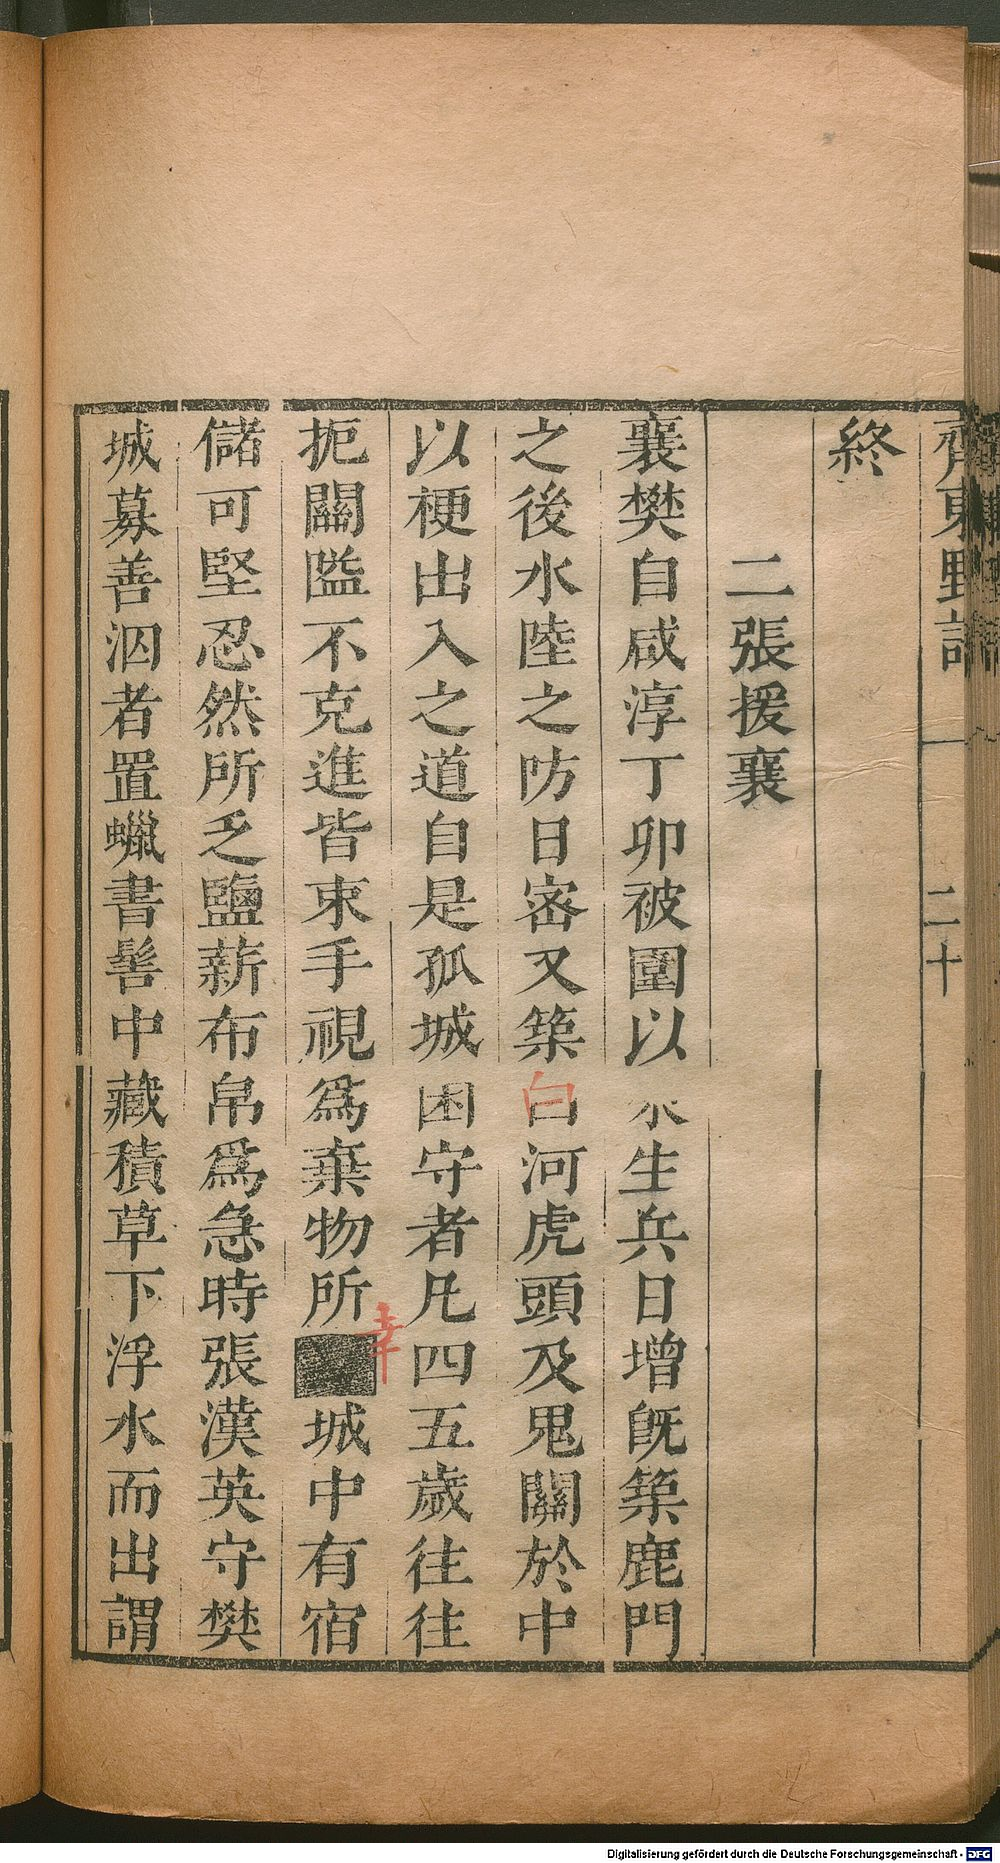 齊東野語
二十
終
二張援襄
襄樊自咸淳丁卯被圍以來生兵日增旣築鹿門
之後水陸之防日密又築白河虎頭及鬼關於中
以梗出入之道自是孤城困守者凡四五歲往往
扼關隘不克進皆束手視爲棄物所幸城中有宿
儲可堅忍然所乏鹽薪布帛爲急時張漢英守樊
城募善泅者置蠟書髻中藏積草下浮水而出謂
Digitalisierung gefördert durch die Deutsche Forschungsgemeinschaft - DFG